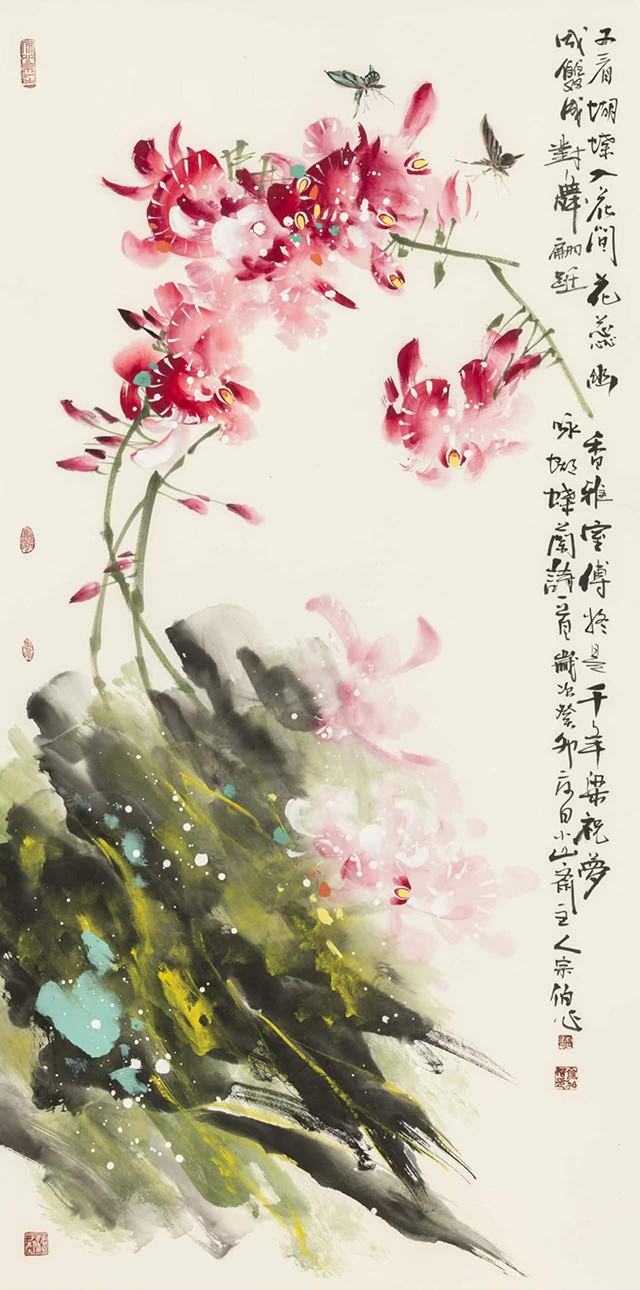 看蝴蝶入花間花蕊幽香雅室傳是千年梁祝夢
成雙成對舞翩躚詠蝴蝶蘭詩一首歲次癸卯夏日小山斋主人宗伯